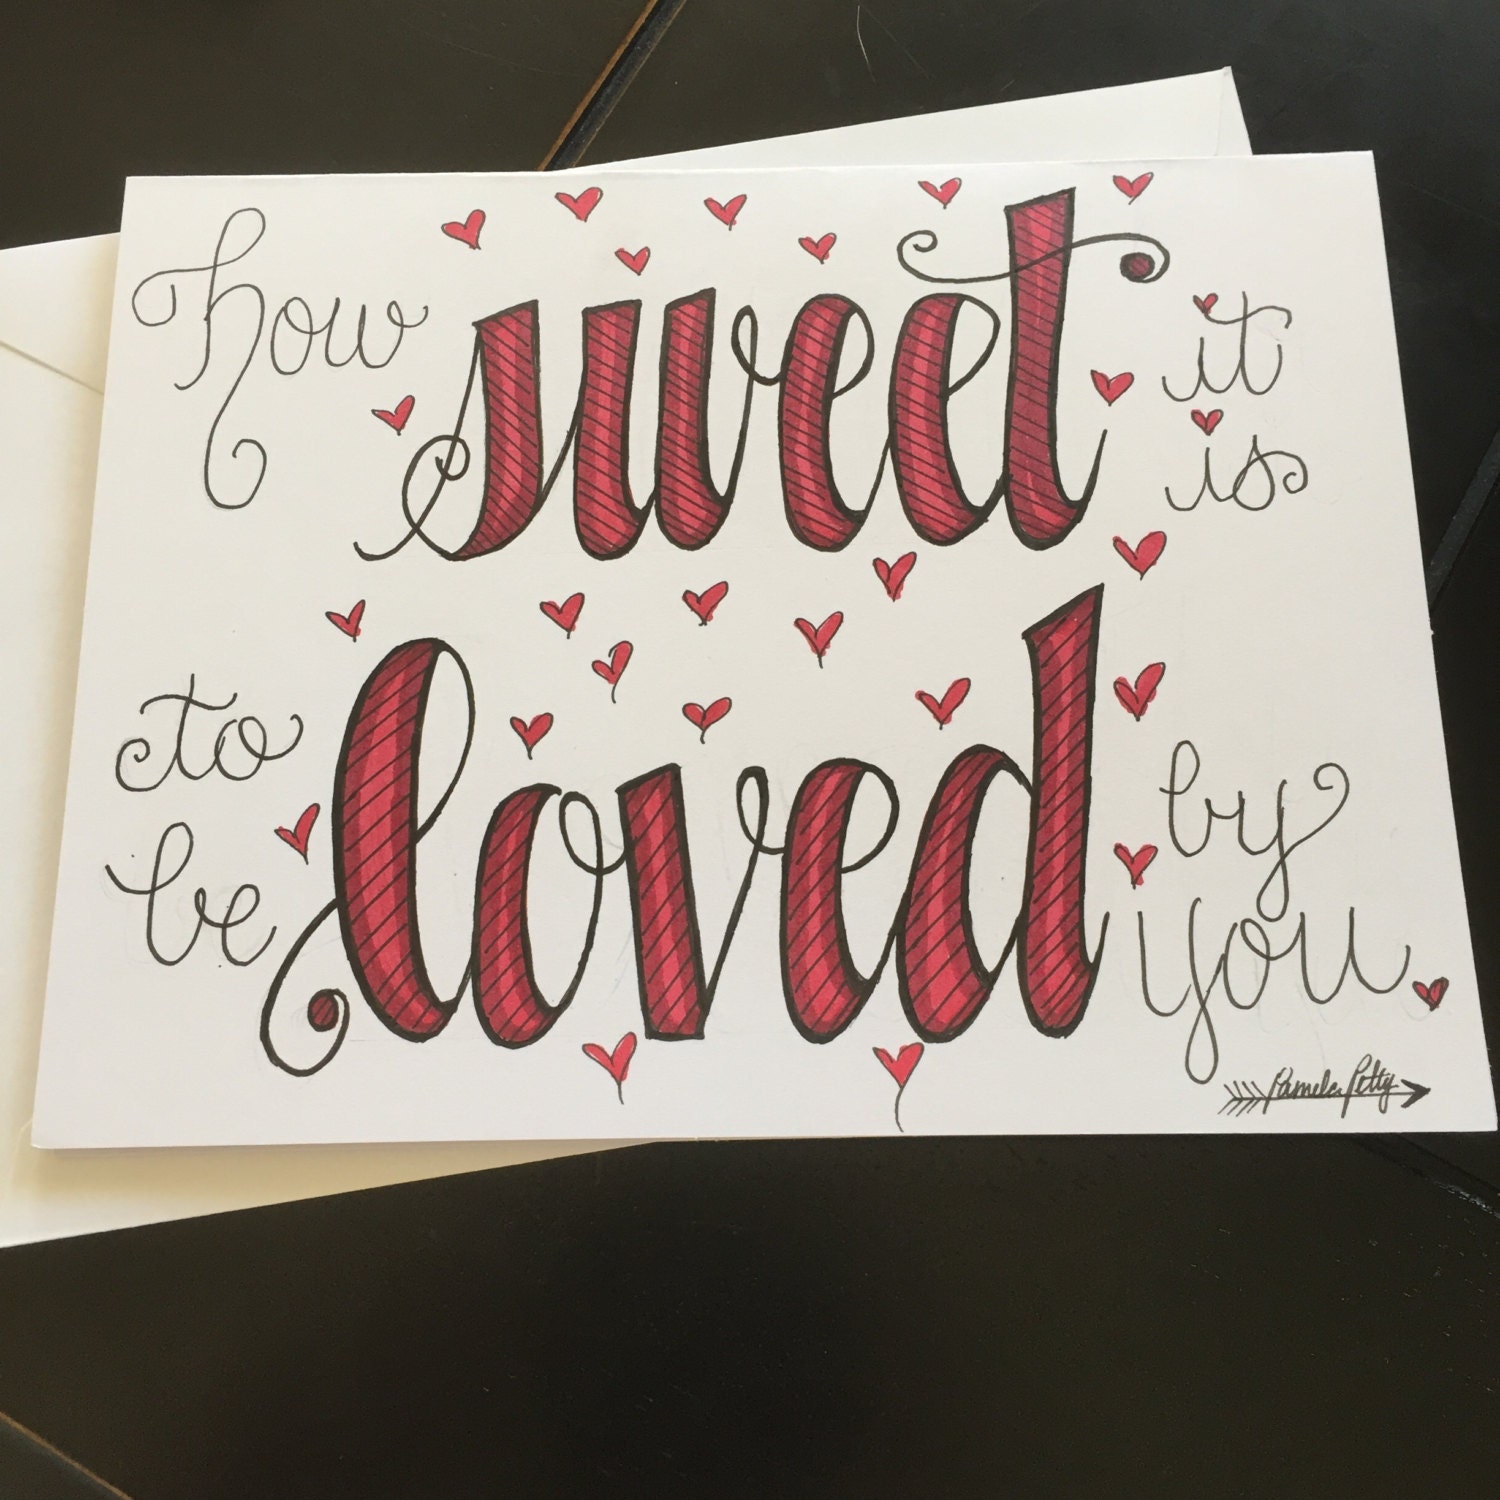 how sweet it is
to be loved by you
Pamela Petty